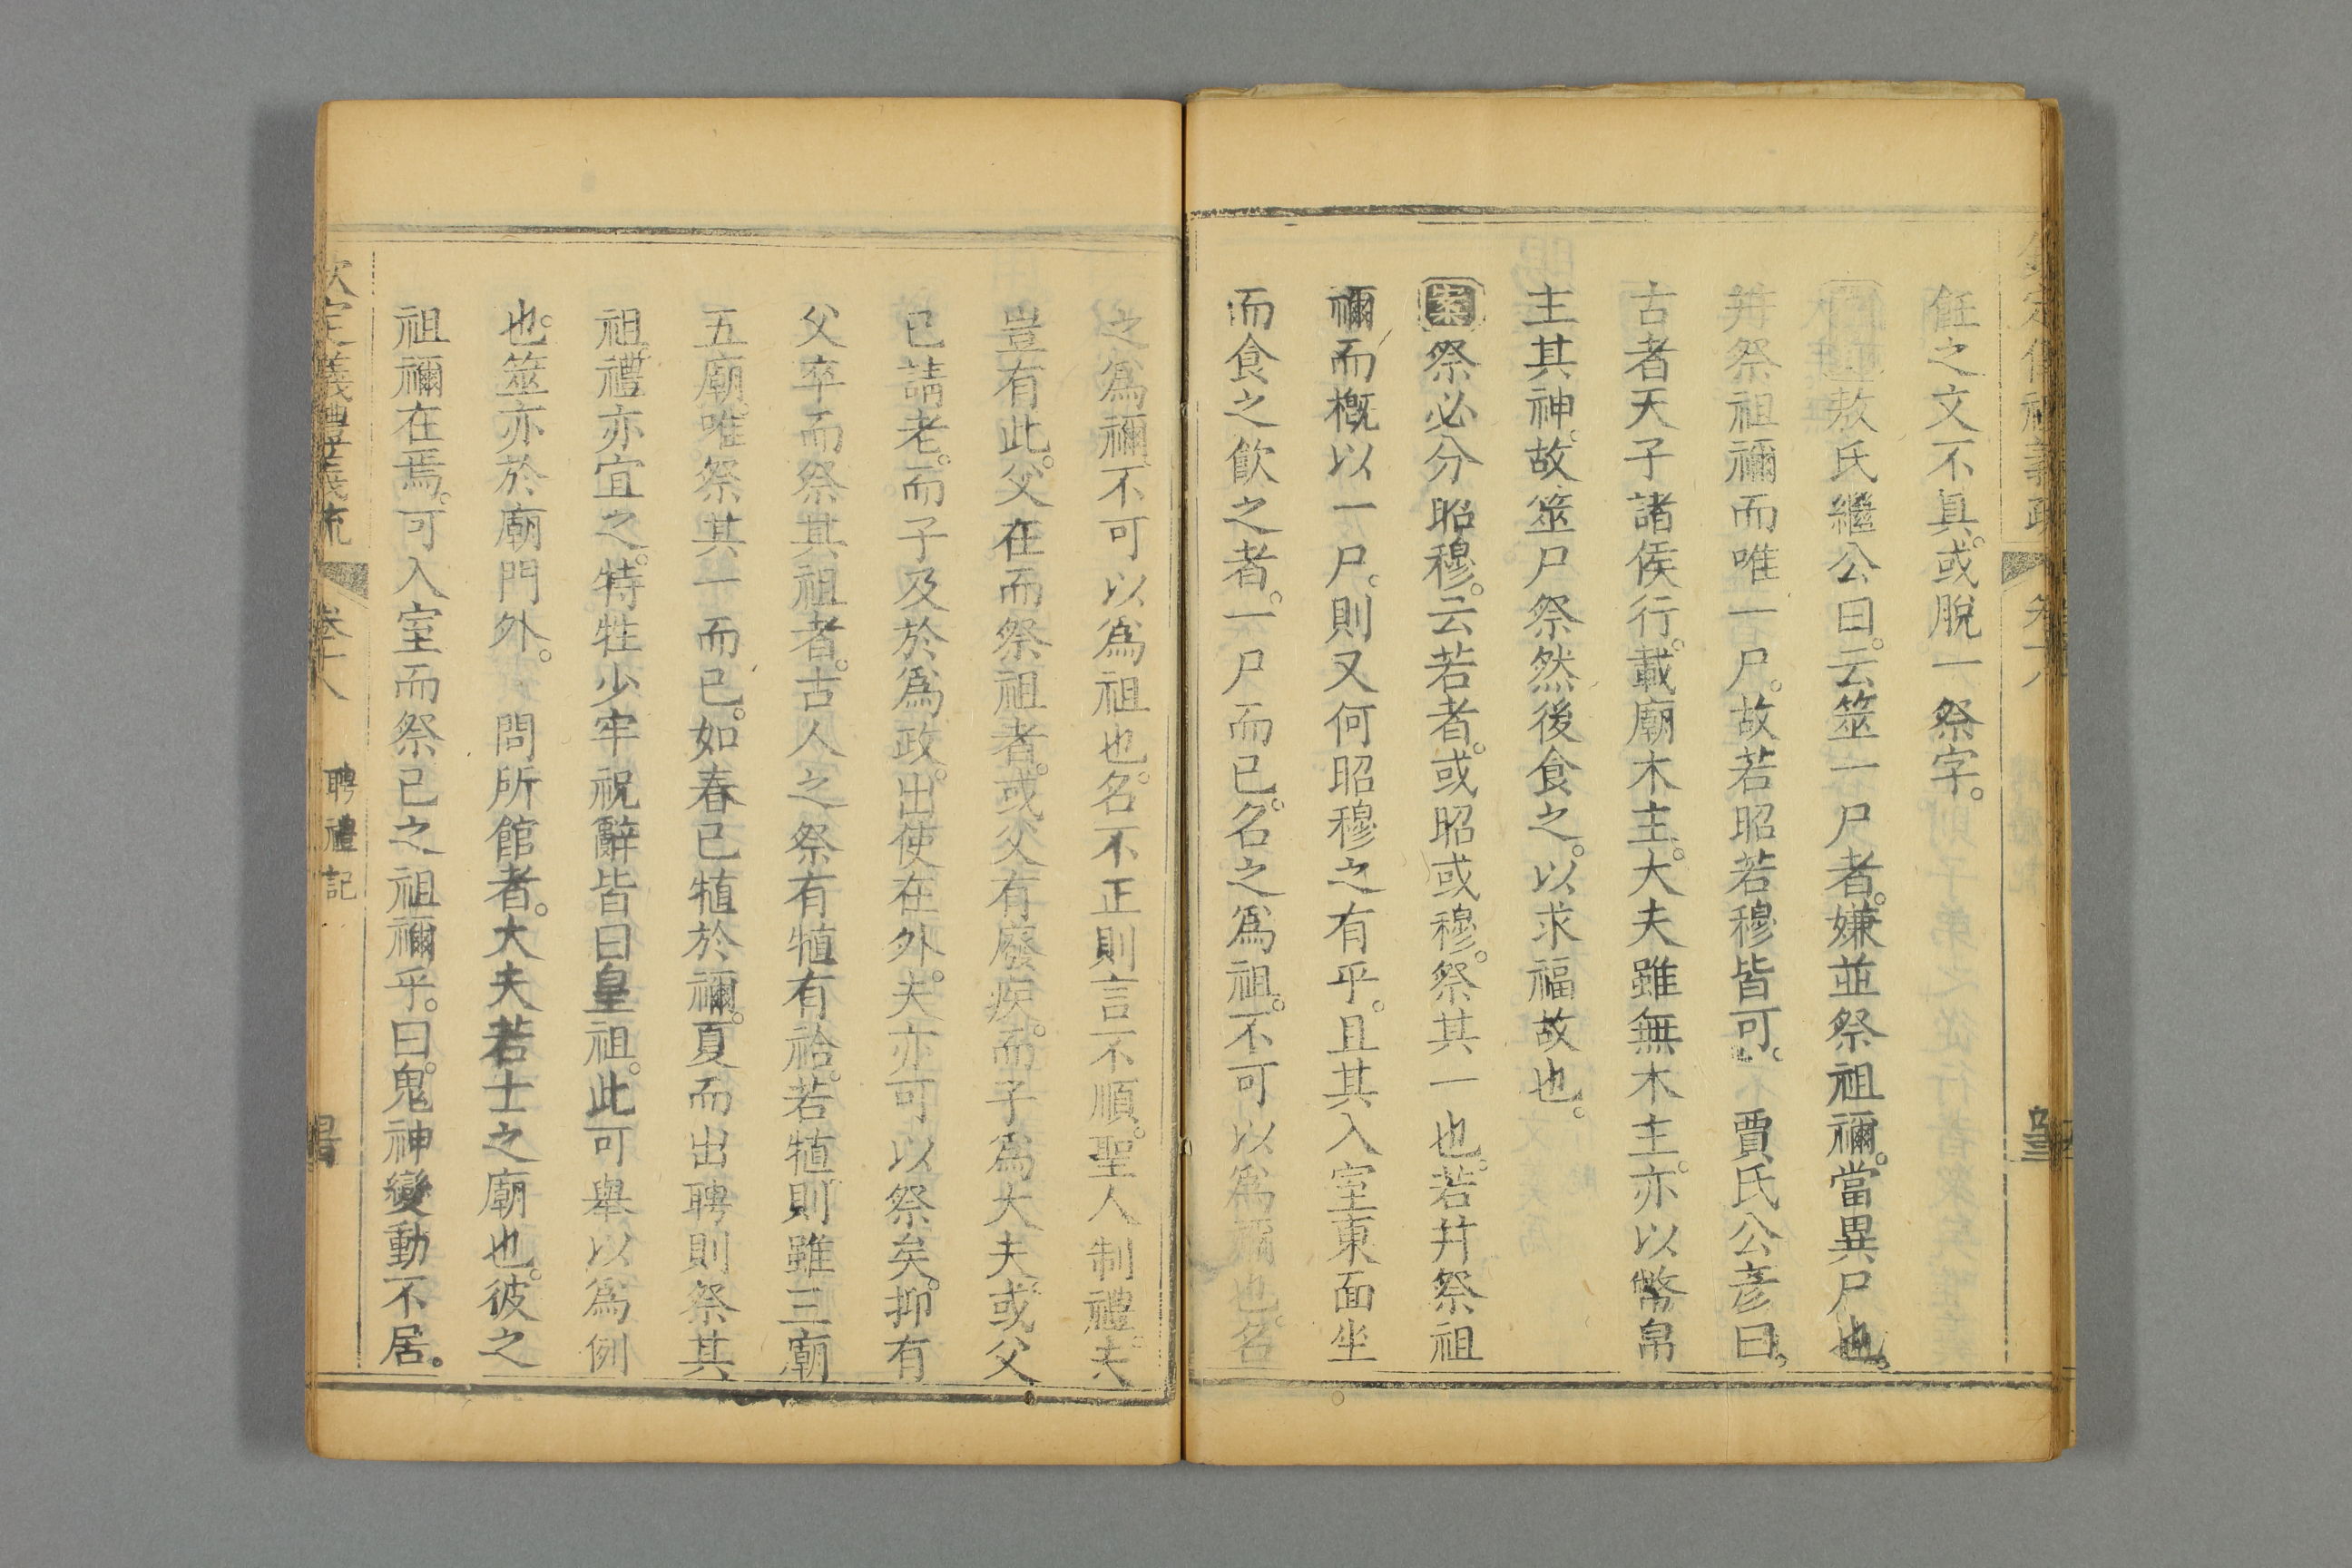 任之文不具。或脫一祭字。
敖氏繼公曰。云筮一尸者。嫌並祭祖禰。當異尸也。
幷祭祖禰而唯一尸。故若昭若穆皆可。 賈氏公彥曰。
古者天子諸侯行。載廟木主。大夫雖無木主。亦以幣帛
主其神。故筮尸祭然後食之。以求福故也。
案祭必分昭穆。云若者。或昭或穆。祭其一也。若幷祭祖
禰而槪以一尸。則又何昭穆之有乎。且其入室東面坐
而食之飮之者。一尸而已。名之爲祖。不可以爲禰也。名
之爲禰不可以爲祖也。名不正則言不順。聖人制禮。夫
豈有此。父在而祭祖者。或父有廢疾。而子爲大夫或父
已請老。而子及於爲政。出使在外。夫亦可以祭矣。抑有
父卒而祭其祖者。古人之祭有犆有祫。若犆則雖三廟
五廟。唯祭其一而已。如春已犆於禰。夏而出聘則祭其
祖。禮亦宜之。特牲少牢祝辭皆曰皇祖。此可舉以爲例
也。筮亦於廟門外。 問所館者。大夫若士之廟也。彼之
祖禰在焉。可入室而祭已之祖禰乎。曰。鬼神變動不居。
欽定儀禮義疏 卷十八 聘禮記